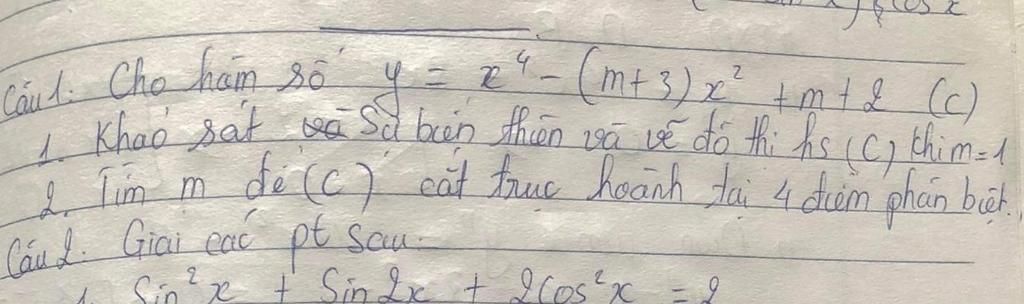 cos x
Câu 1. Cho hàm số y = x⁴ - (m+3)x² + m + 2 (C)
1. Khảo sát và Sự biến thiên và vẽ đồ thị hs (C) khi m=1
2. Tìm m để (C) cắt trục hoành tại 4 điểm phân biệt.
Câu 2. Giải các pt sau.
1. Sin²x + Sin 2x + 2Cos²x = 2